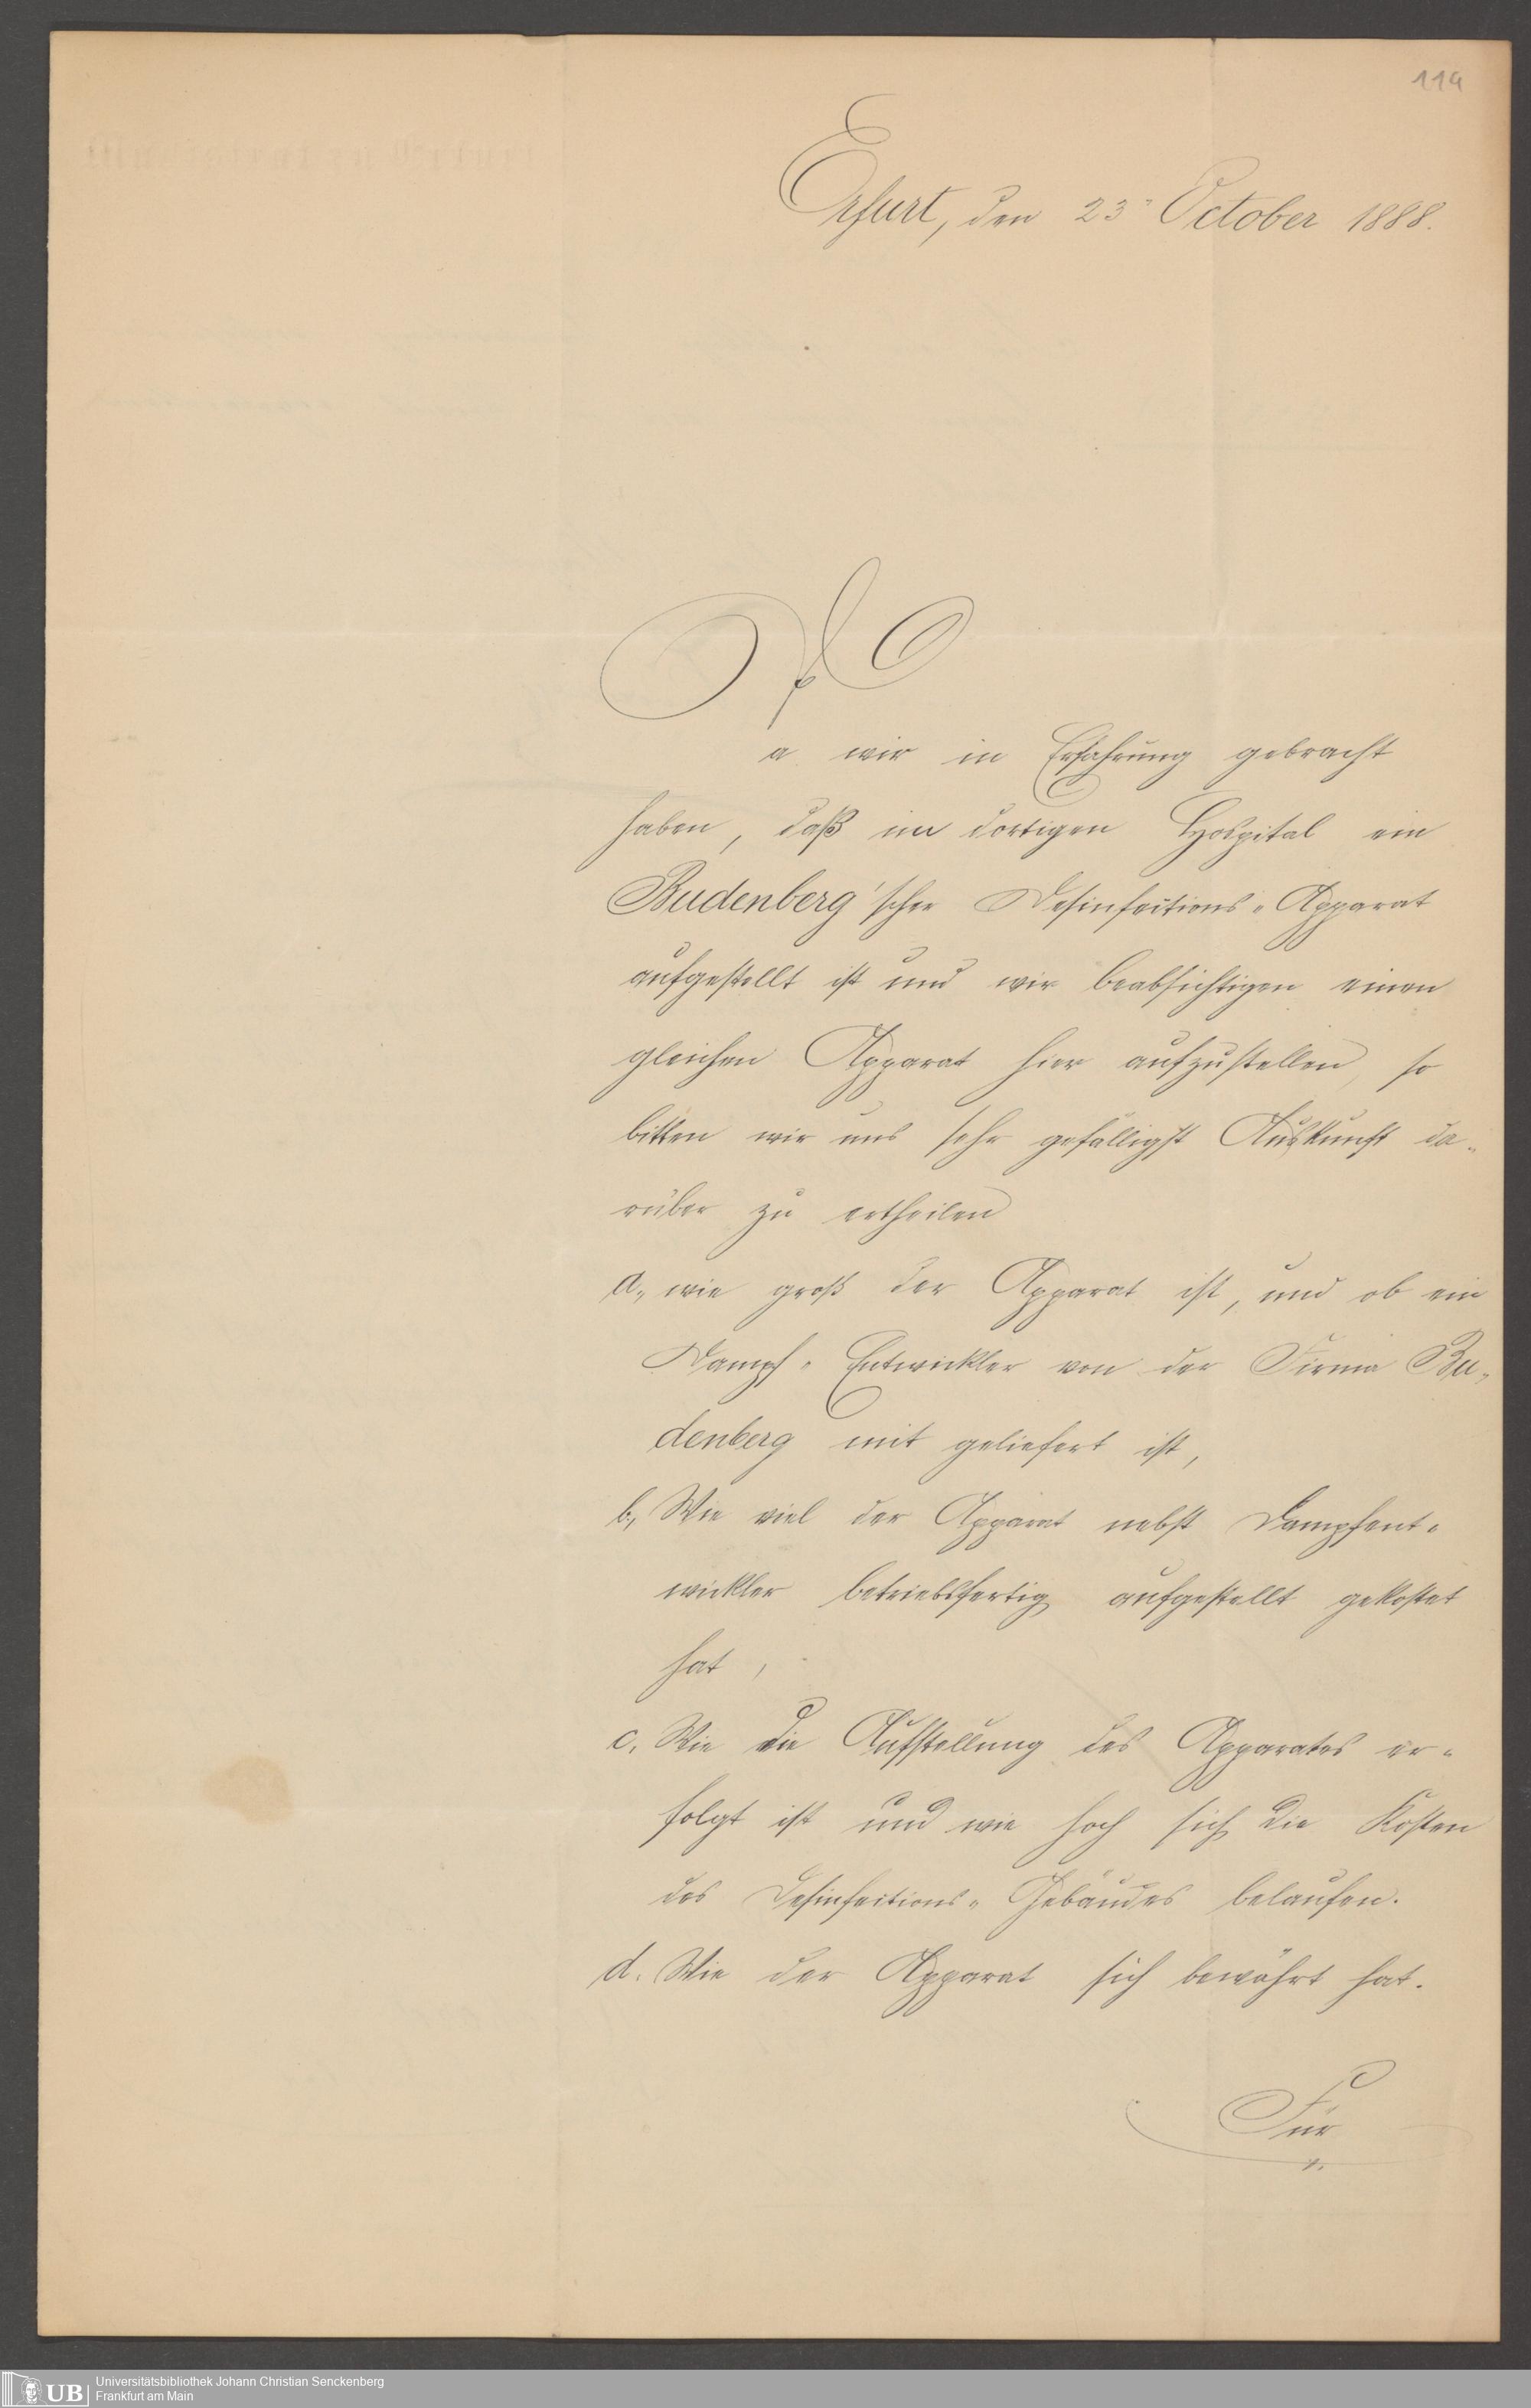 114
Erfurt, den 23. October 1888.
Da wir in Erfahrung gebracht
haben, daß im dortigen Hospital ein
Budenberg'scher Desinfections-Apparat
aufgestellt ist und wir beabsichtigen einen
gleichen Apparat hier aufzustellen, so
bitten wir uns sehr gefälligst Auskunft da-
rüber zu ertheilen
a., wie groß der Apparat ist, und ob ein
Dampf-Entwickler von der Firma Bu-
denberg mit geliefert ist,
b., Wie viel der Apparat nebst Dampfent-
wickler betriebsfertig aufgestellt gekostet
hat,
c. Wie die Aufstellung des Apparates er-
folgt ist und wie hoch sich die Kosten
des Desinfections-Gebäudes belaufen.
d. Wie der Apparat sich bewährt hat.
Für
UB
Universitätsbibliothek Johann Christian Senckenberg
Frankfurt am Main